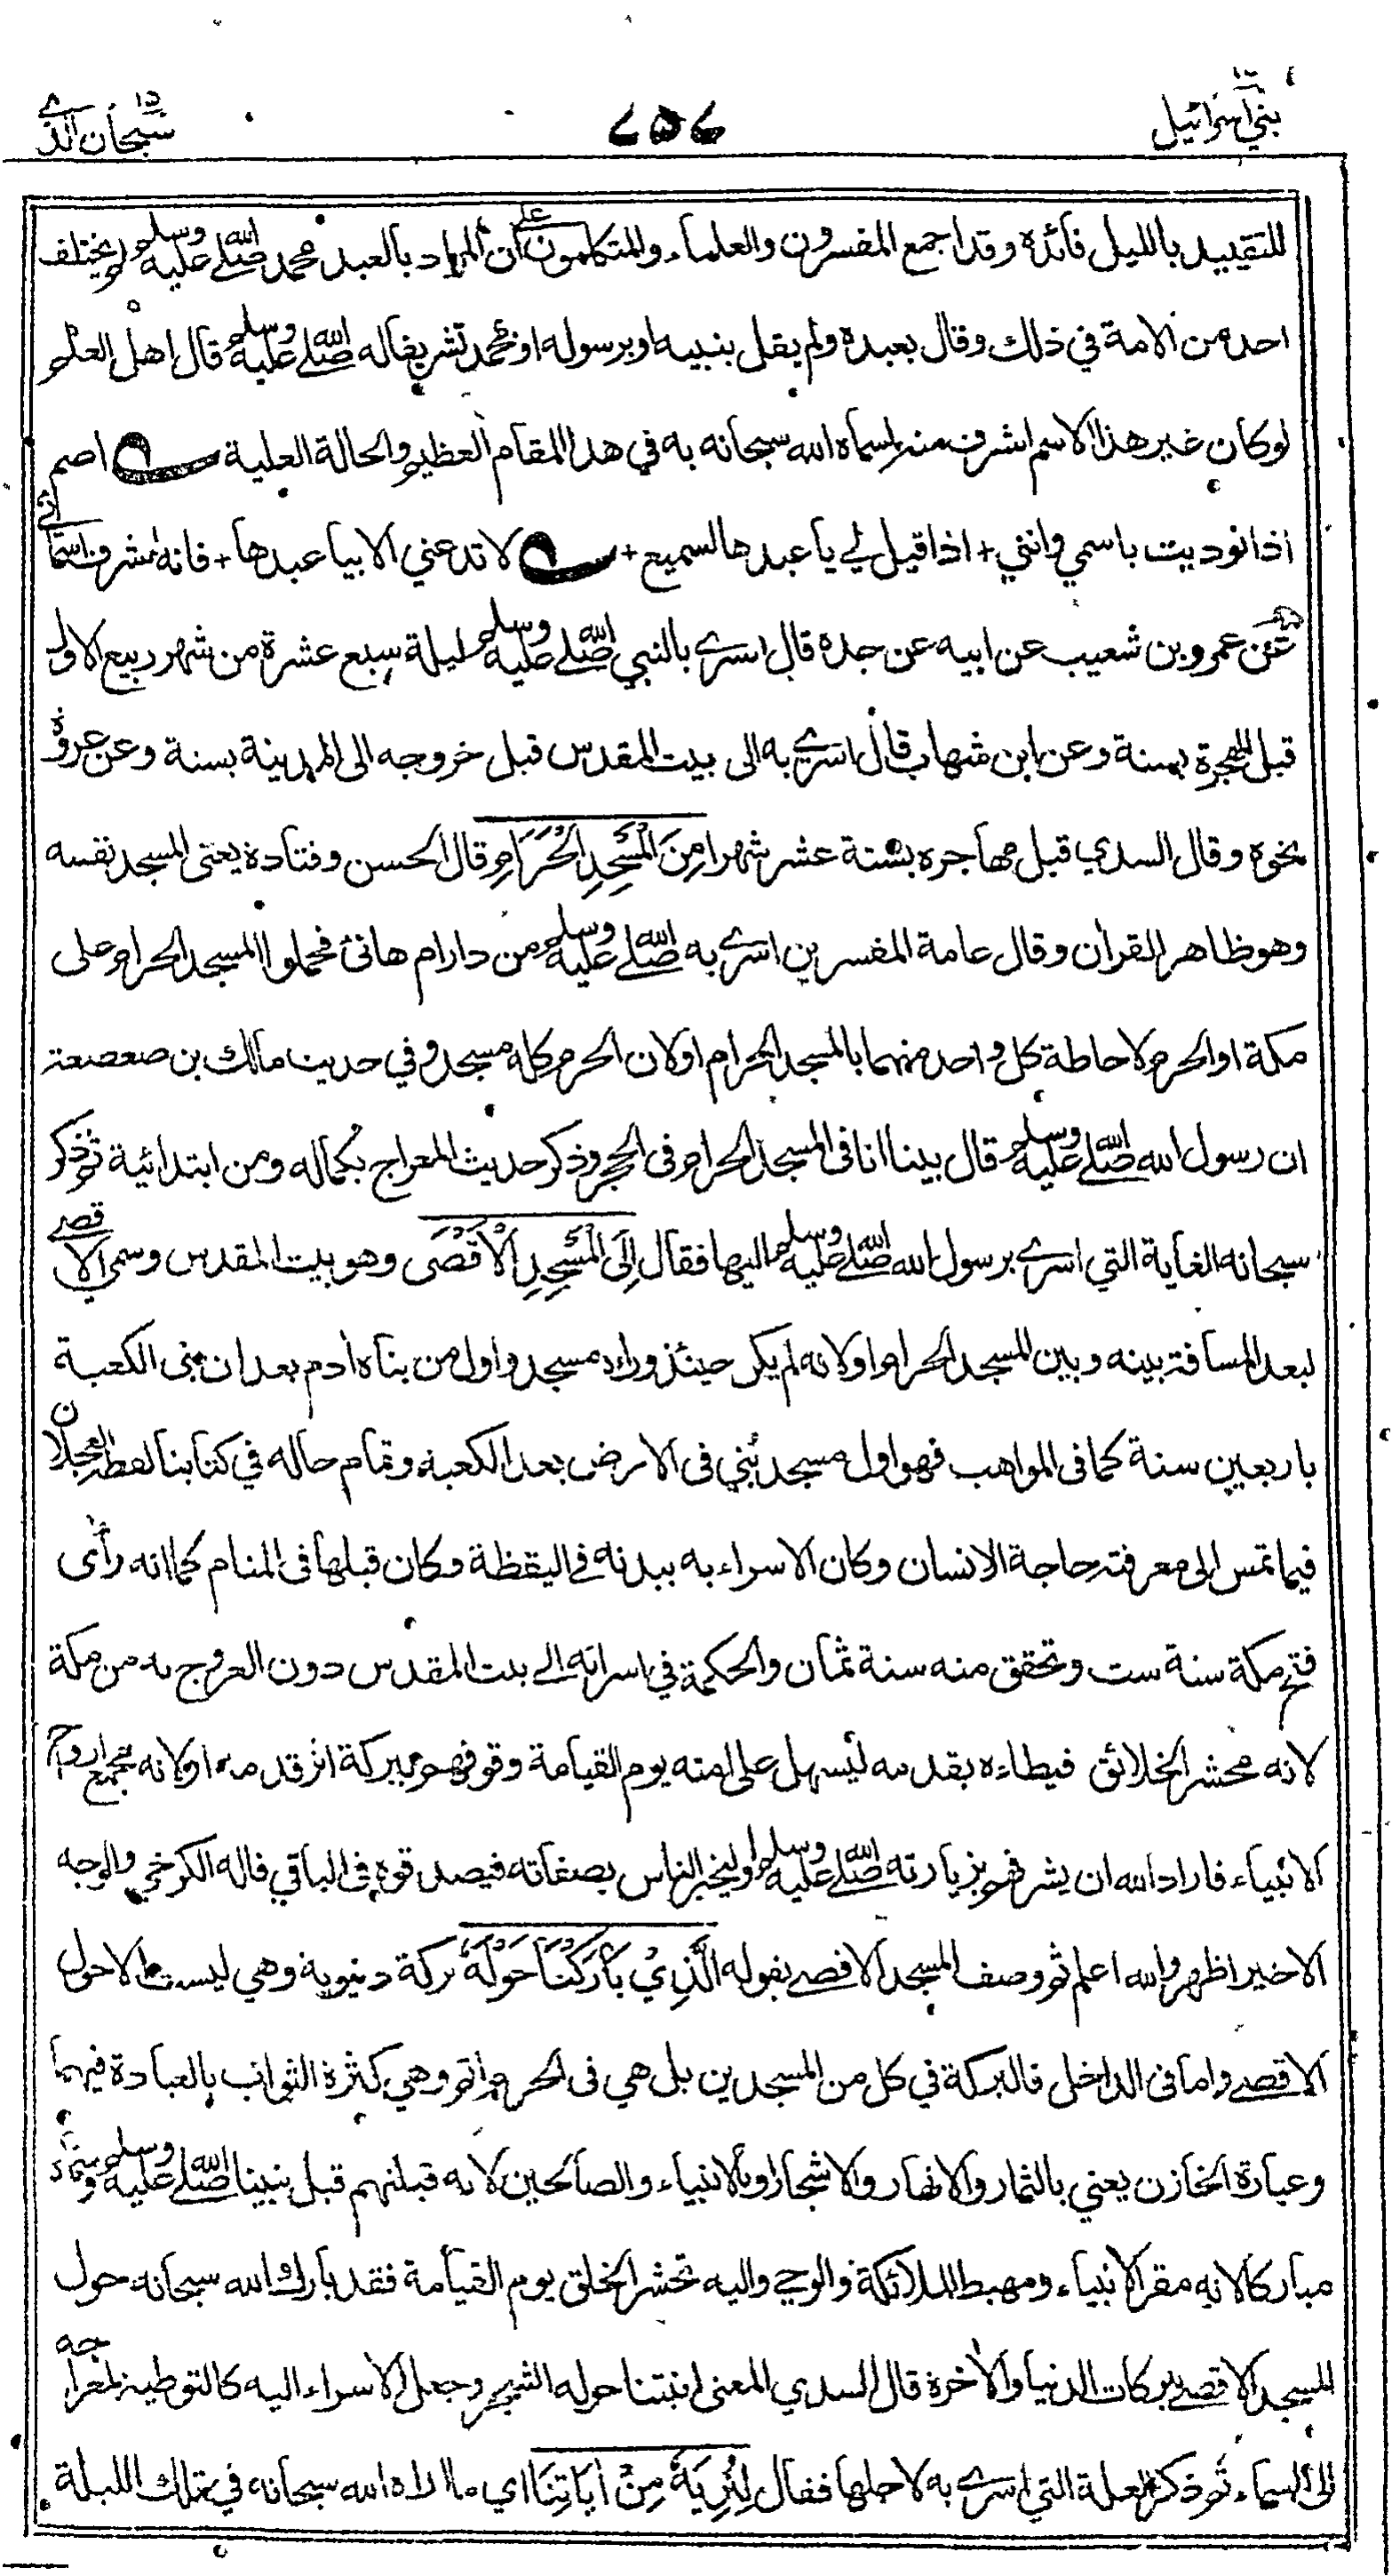 بني اسرائيل ١٧
٧٥٧
سبحان الذي ١٥
للتقييد بالليل فائدة وقد اجمع المفسرون والعلماء والمتكلمون على ان المراد بالعبد محمد صلى الله عليه وسلم لم يختلف
احد من الامة في ذلك وقال بعبده ولم يقل بنبيه او برسوله او محمد تشريفا له صلى الله عليه وسلم قال اهل العلم
لو كان غير هذا الاسم اشرف منه لسماه الله سبحانه به في هذا المقام العظيم والحالة العلية اصم
اذا نوديت باسمي وانني + اذا قيل لي يا عبدها لسميع + لا تدعني الا بيا عبدها + فانه اشرف اسمائي
عن عمرو بن شعيب عن ابيه عن جده قال اسري بالنبي صلى الله عليه وسلم ليلة سبع عشرة من شهر ربيع الاول
قبل الهجرة بسنة وعن ابن شهاب قال اسري به الى بيت المقدس قبل خروجه الى المدينة بسنة وعن عروة
نحوه وقال السدي قبل مهاجره بستة عشر شهرا مِنَ الْمَسْجِدِ الْحَرَامِ قال الحسن وقتادة يعني المسجد نفسه
وهو ظاهر القران وقال عامة المفسرين اسري به صلى الله عليه وسلم من دار ام هانئ فحملوا المسجد الحرام على
مكة او الحرم لاحاطة كل واحد منهما بالمسجد الحرام او لان الحرم كله مسجد وفي حديث مالك بن صعصعة
ان رسول الله صلى الله عليه وسلم قال بينا انا فى المسجد الحرام فى الحجر وذكر حديث المعراج بكماله ومن ابتدائية ثم ذكر
سبحانه الغاية التي اسري برسول الله صلى الله عليه وسلم اليها فقال اِلَى الْمَسْجِدِ الْاَقْصَى وهو بيت المقدس وسمي الاقصى
لبعد المسافة بينه وبين المسجد الحرام او لانه لم يكن حينئذ وراءه مسجد واول من بناه ادم بعد ان بنى الكعبة
باربعين سنة كما فى المواهب فهو اول مسجد بُني فى الارض بعد الكعبة وتمام حاله في كتابنا لقطة العجلان
فيما تمس الى معرفته حاجة الانسان وكان الاسراء به ببدنه في اليقظة وكان قبلها فى المنام كما انه رأى
فتح مكة سنة ست وتحقق منه سنة ثمان والحكمة في اسرائه الى بيت المقدس دون العروج به من مكة
لانه محشر الخلائق فيطاءه بقدمه ليسهل على امته يوم القيامة وقوفهم ببركة اثر قدمه او لانه مجمع ارواح
الانبياء فاراد الله ان يشرفهم بزيارته صلى الله عليه وسلم او ليخبر الناس بصفاته فيصدقوه فى الباقي قاله الكرخي والوجه
الاخير اظهر والله اعلم ثم وصف المسجد الاقصى بقوله الَّذِيْ بَارَكْنَا حَوْلَهٗ بركة دنيوية وهي ليست الا حول
الاقصى واما فى الداخل فالبركة في كل من المسجدين بل هي فى الحرم اتم وهي كثرة الثواب بالعبادة فيهما
وعبارة الخازن يعني بالثمار والانهار والاشجار او بالانبياء والصالحين لانه قبلتهم قبل نبينا صلى الله عليه وسلم وسماه
مباركا لانه مقر الانبياء ومهبط الملائكة والوحي واليه تحشر الخلق يوم القيامة فقد بارك الله سبحانه حول
المسجد الاقصى ببركات الدنيا والاخرة قال السدي المعنى انبتنا حوله الشجر وجعل الاسراء اليه كالتوطية لمعراجه
الى السماء ثم ذكر العلة التي اسري به لاجلها فقال لِنُرِيَهٗ مِنْ اٰيَاتِنَا اي ما اراه الله سبحانه في تلك الليلة